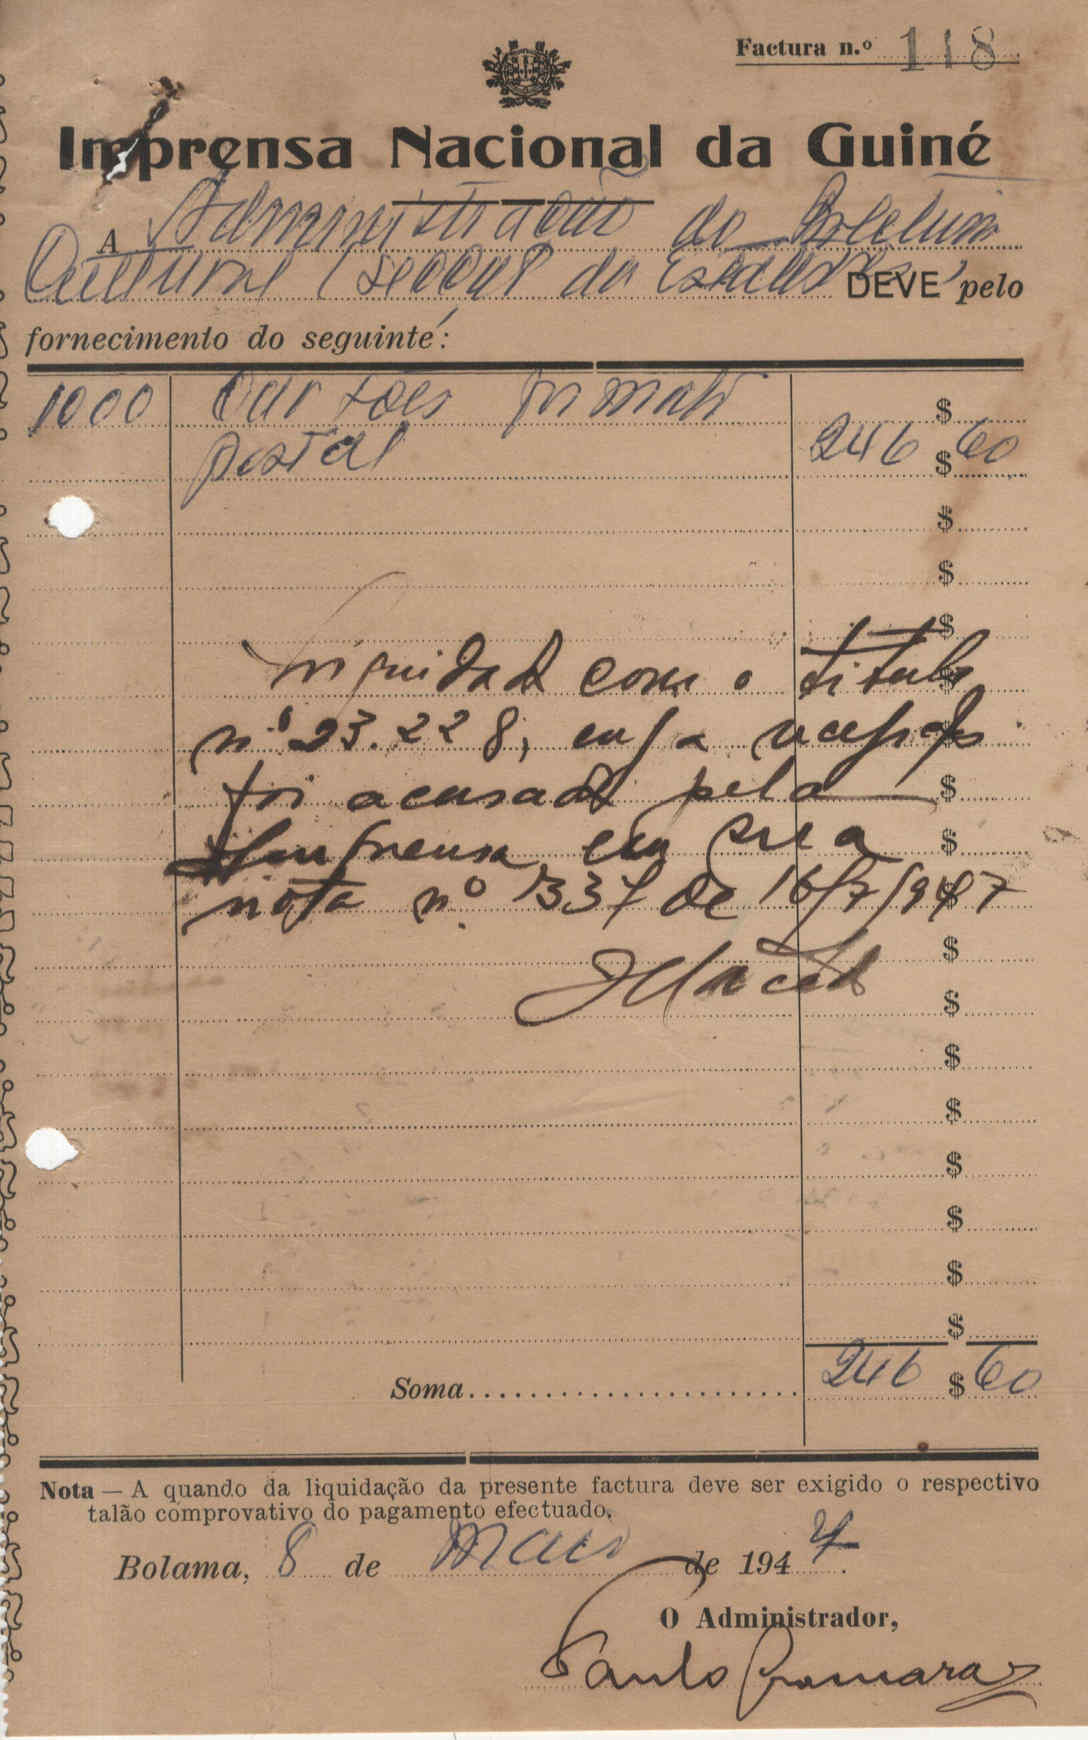 Factura n.º 118
Imprensa Nacional da Guiné
A Administração do Boletim
Cultural (secção de Estudos) DEVE pelo
fornecimento do seguinte:
1000 Cartões formato $
postal 246 $ 60
$
$
$
Liquidado com o titulo $
nº 23.228, cuja recepção $
foi acusada pela $
Imprensa em sua $
nota nº 337 de 16/7/947 $
$
$
$
$
$
$
$
$
Soma 246 $ 60
Nota — A quando da liquidação da presente factura deve ser exigido o respectivo
talão comprovativo do pagamento efectuado.
Bolama, 8 de Maio de 1947.
O Administrador,
Paulo